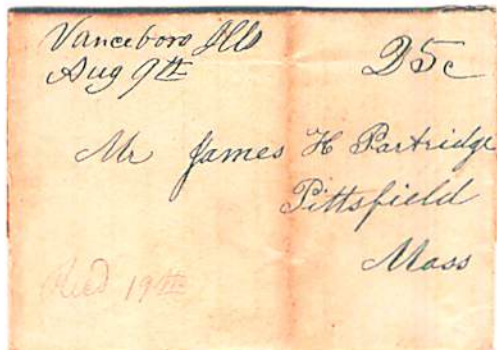 Vanceboro Ills
Aug 9th
25c
Mr James H Partridge
Pittsfield
Mass
Recd 19th